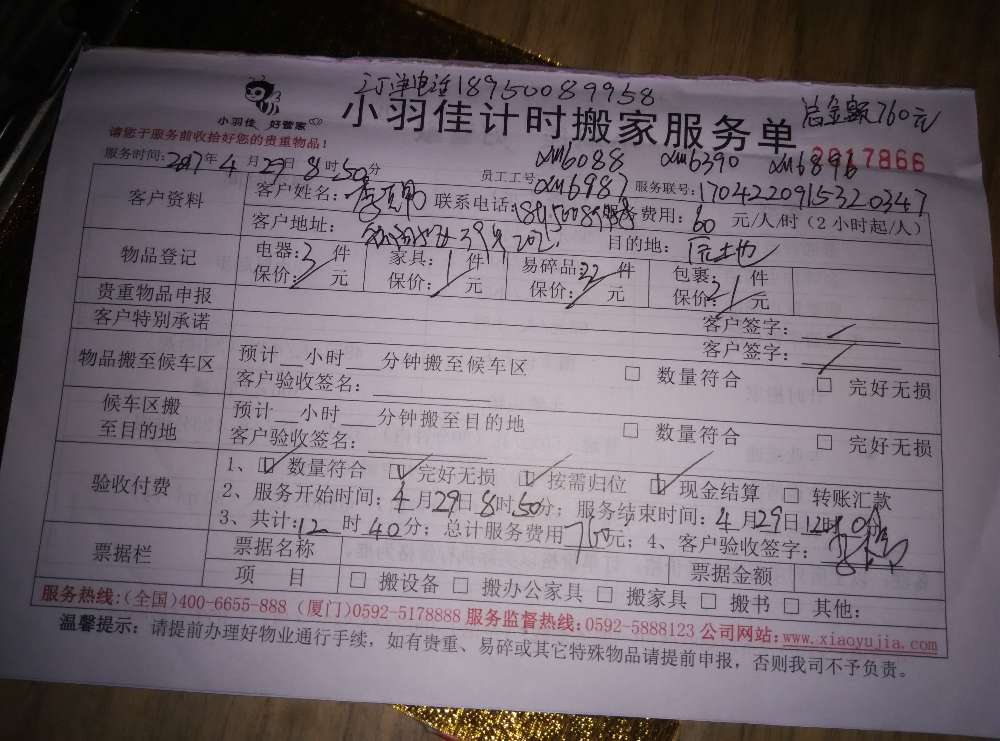 订单电话18950089958
小羽佳 好管家
小羽佳计时搬家服务单
总金额760元
请您于服务前收拾好您的贵重物品!
XM6088 XM6390 XM6896
2817866
服务时间:2017年4月29日8时50分 员工工号 XM6987 服务联号:170422091532 0347
客户资料 客户姓名: 联系电话: 费用:60元/人/时(2小时起/人)
客户地址: 39号202 目的地:
物品登记 电器:3件 家具:1件 易碎品: 件 包裹: 件
保价: 元 保价: 元 保价: 元 保价: 元
贵重物品申报 客户签字:
客户特别承诺 客户签字:
物品搬至候车区 预计__小时__分钟搬至候车区 □ 数量符合 □ 完好无损
客户验收签名:
候车区搬至目的地 预计__小时__分钟搬至目的地 □ 数量符合 □ 完好无损
客户验收签名:
验收付费 1、☑数量符合 ☑完好无损 ☑按需归位 ☑现金结算 □ 转账汇款
2、服务开始时间:4月29日8时50分;服务结束时间:4月29日12时 0分
3、共计:12时40分;总计服务费用760元;4、客户验收签字:
票据栏 票据名称 票据金额
项 目 □ 搬设备 □ 搬办公家具 □ 搬家具 □ 搬书 □ 其他:
服务热线:(全国)400-6655-888 (厦门)0592-5178888 服务监督热线:0592-5888123 公司网站:www.xiaoyujia.com
温馨提示:请提前办理好物业通行手续,如有贵重、易碎或其它特殊物品请提前申报,否则我司不予负责。